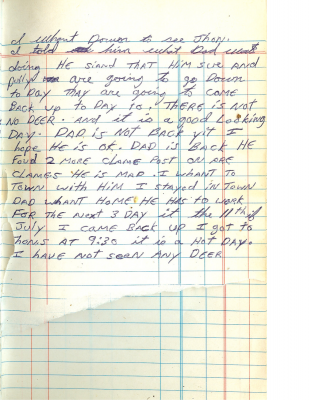 I whant Down to see Jhon.
I told him what Dad was
doing HE siand THAT HIM SUE AND
pully are going to go Down
to DAY THAY are going to COME
BACK up to DAY to. THERE IS NOT
NO DEER. And it is a good Looking
DAY. DAD is Not BACK yit I
hope HE is OK. DAD is BACK HE
Foud 2 MORE CLAME POST ON ARE
CLAMES HE is MAD. I WHANT to
TOWN with HiM I stayed in TOWN
DAD WHANT HOME HE HAS to WORK
FOR THE NEXT 3 DAY it the 11th of
July I CAME BACK UP I got to
Jhons AT 9:30 it is A HOT DAY.
I HAVE NOT SEEN ANY DEER